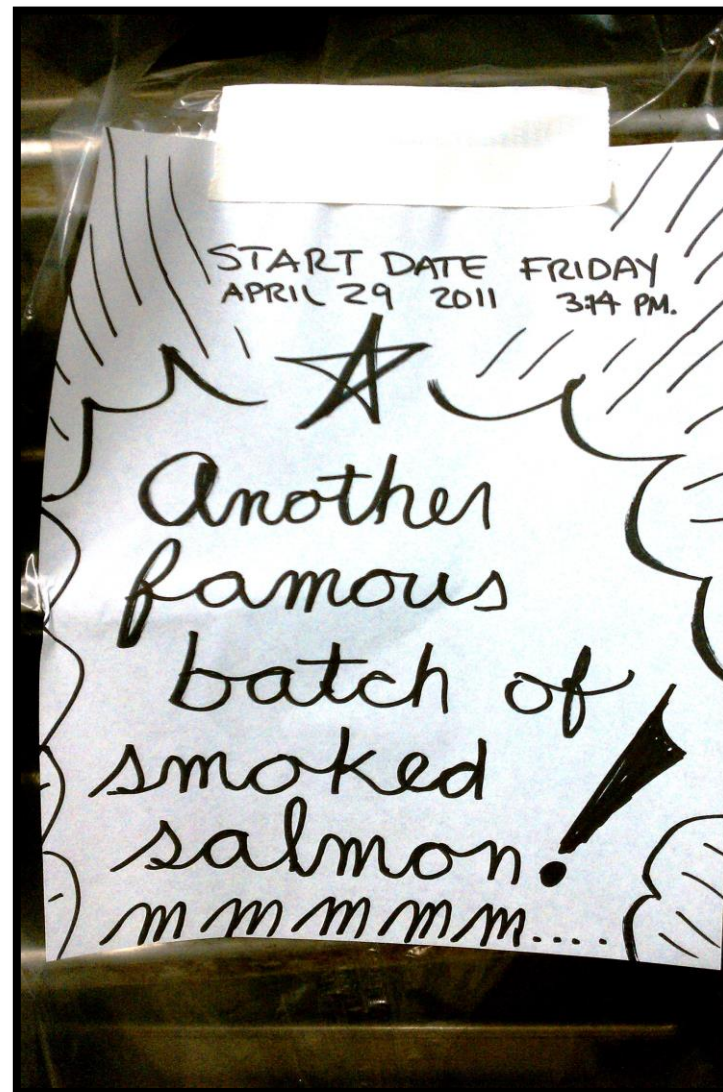 START DATE FRIDAY
APRIL 29 2011 3:14 PM.
Another
famous
batch of
smoked
salmon!
mmmmm....